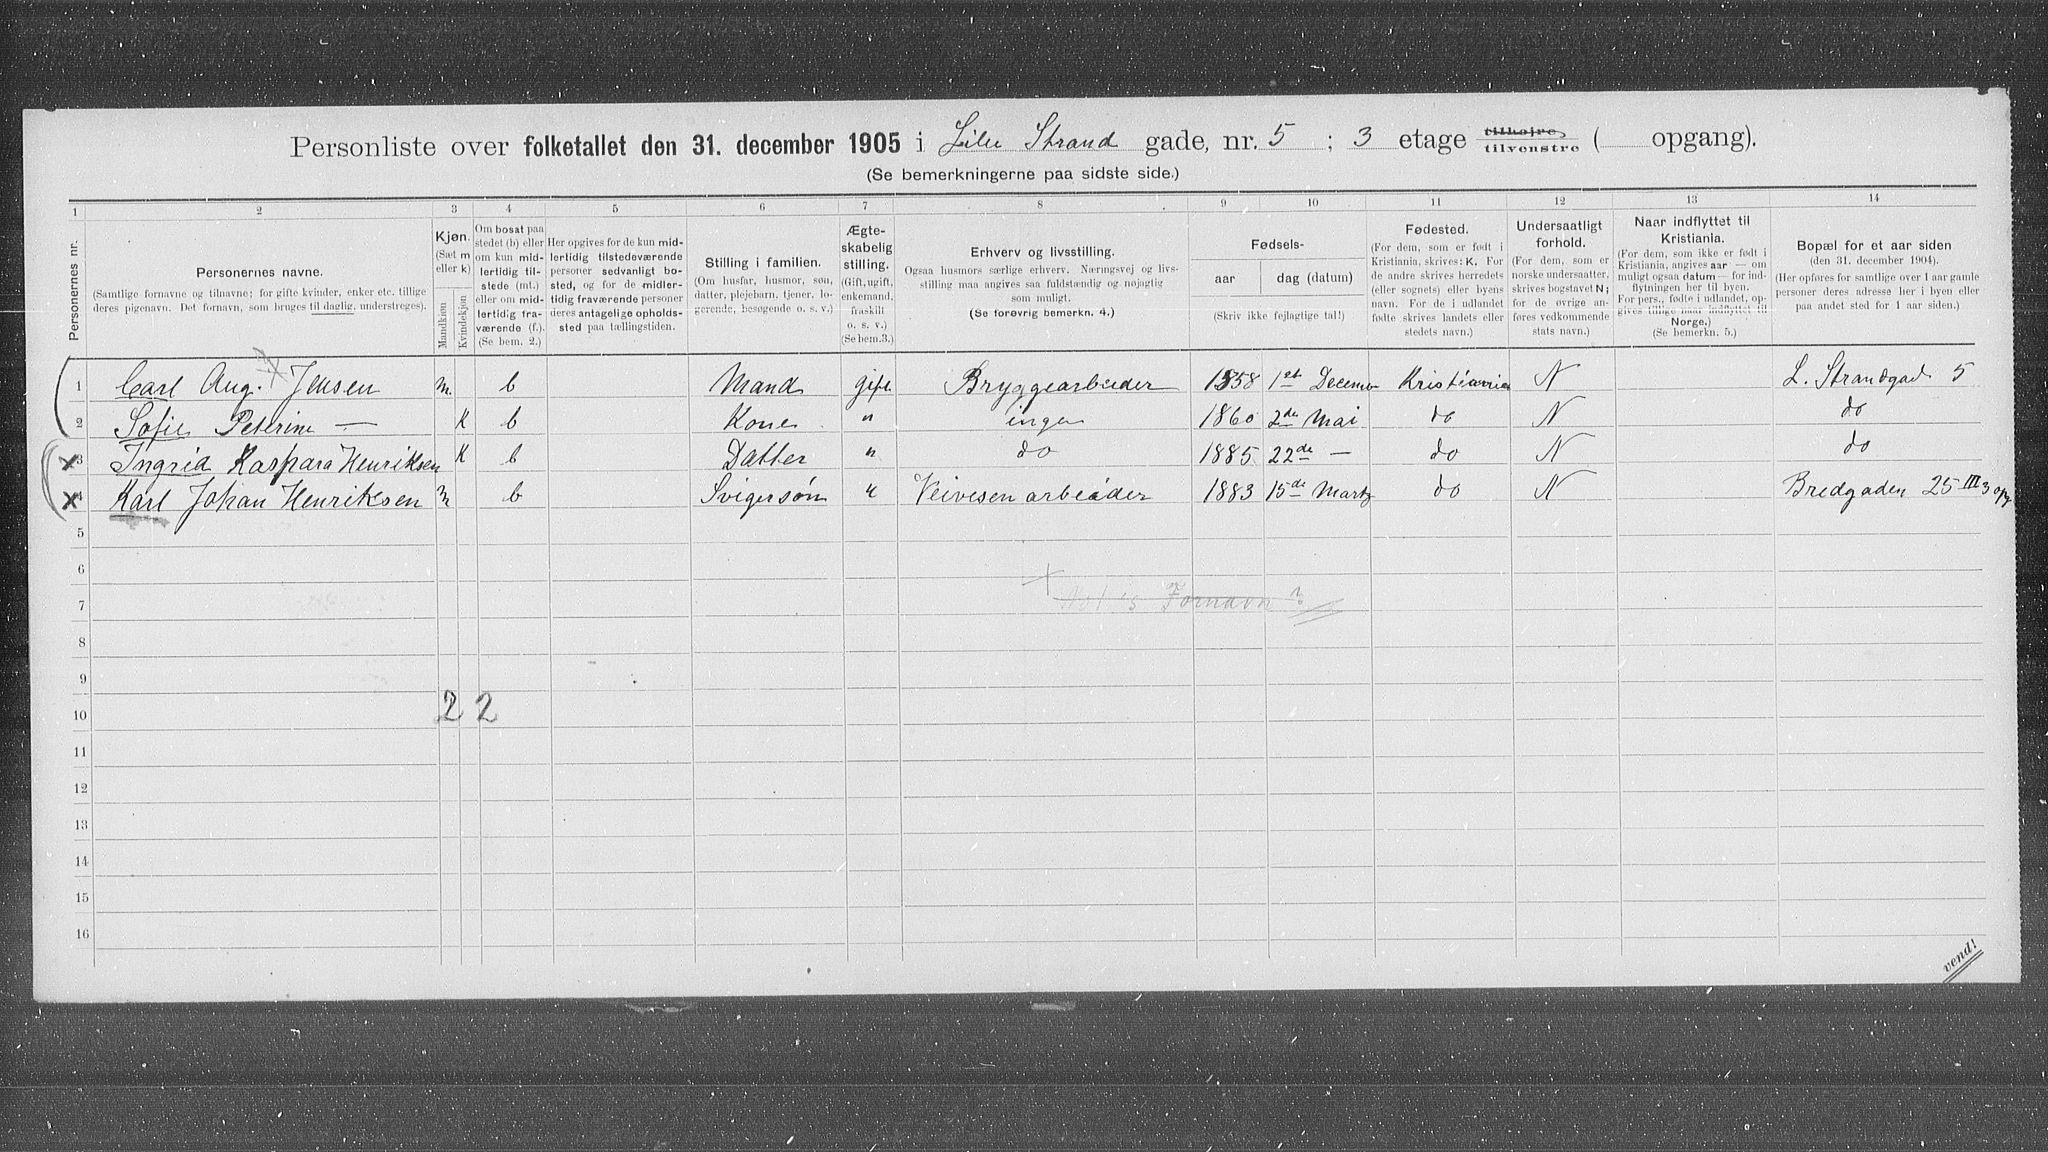 Personliste over folketallet den 31. december 1905 i Lille Strand gade, nr. 5 ; 3 etage tilhøjre tilvenstre ( opgang).
(Se bemerkningerne paa sidste side.)
1 2 3 4 5 6 7 8 9 10 11 12 13 14
Personernes nr.
Personernes navne.
(Samtlige fornavne og tilnavne; for gifte kvinder, enker etc. tillige
deres pigenavn. Det fornavn, som bruges til daglig, understreges).
Kjøn.
(Sæt m
eller k)
Mandkjøn
Kvindekjøn
Om bosat paa
stedet (b) eller
om kun mid-
lertidig til-
stede (mt.)
eller om mid-
lertidig fra-
værende (f.).
(Se bem. 2.)
Her opgives for de kun mid-
lertidig tilstedeværende
personer sedvanligt bo-
sted, og for de midler-
tidig fraværende personer
deres antagelige opholds-
sted paa tællingstiden.
Stilling i familien.
(Om husfar, husmor, søn,
datter, plejebarn, tjener, lo-
gerende, besøgende o. s. v.)
Ægte-
skabelig
stilling.
(Gift, ugift,
enkemand,
fraskilt
o. s. v.)
(Se bem.3.)
Erhverv og livsstilling.
Ogsaa husmors særlige erhverv. Næringsvej og livs-
stilling maa angives saa fuldstændig og nøjagtig
som muligt.
(Se forøvrig bemerkn. 4.)
Fødsels-
aar dag (datum)
(Skriv ikke fejlagtige tal!)
Fødested.
(For dem, som er født i
Kristiania, skrives: K. For
de andre skrives herredets
(eller sognets) eller byens
navn. For de i udlandet
fødte skrives landets eller
stedets navn.)
Undersaatligt
forhold.
(For dem, som er
norske undersaatter,
skrives bogstavet N;
for de øvrige an-
føres vedkommende
stats navn.)
Naar indflyttet til
Kristiania.
(For dem, som ikke er født i
Kristiania, angives aar — om
muligt ogsaa datum — for ind-
flytningen her til byen.
For pers., fødte i udlandet, op-
gives tillige naar indflyttet til
Norge.)
(Se bemerkn. 5.)
Bopæl for et aar siden
(den 31. december 1904).
(Her opføres for samtlige over 1 aar gamle
personer deres adresse her i byen eller
paa andet sted for 1 aar siden.)
1 Carl Aug. Jensen m. b Mand gift Bryggearbeider 1858 1st Decembr Kristiania N L. Strandgad 5
2 Sofie Petrine — K b Kone " ingen 1860 2de Mai do N do
3 Ingrid Kaspara Henriksen K b Datter " do 1885 22de — do N do
4 Karl Johan Henriksen m b Svigersøn " Veivesen arbeider 1883 15de Marts do N Bredgaden 25 III 3 opg
5
6
7 Fornavn ?
8
9
10 2 2
11
12
13
14
15
16
vend!